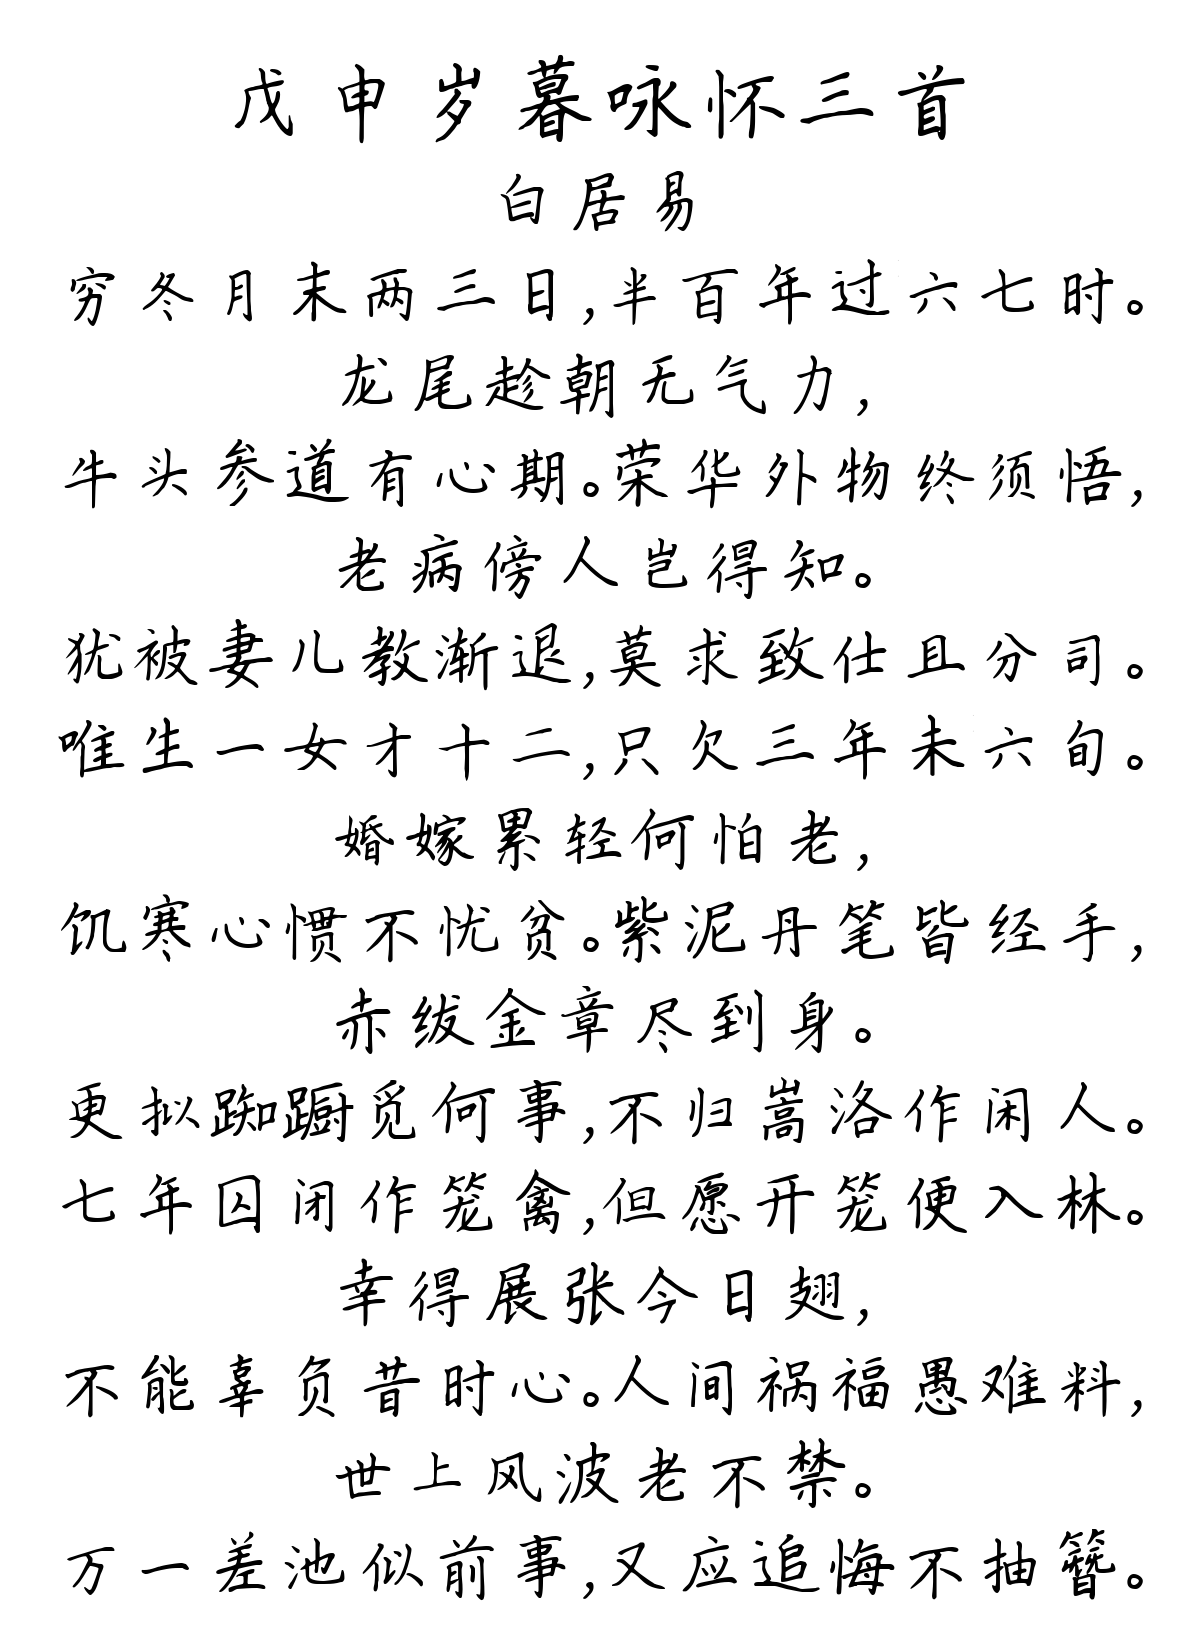 戊申岁暮咏怀三首
白居易
穷冬月末两三日,半百年过六七时。
龙尾趁朝无气力,
牛头参道有心期。荣华外物终须悟,
老病傍人岂得知。
犹被妻儿教渐退,莫求致仕且分司。
唯生一女才十二,只欠三年未六旬。
婚嫁累轻何怕老,
饥寒心惯不忧贫。紫泥丹笔皆经手,
赤绂金章尽到身。
更拟踟蹰觅何事,不归嵩洛作闲人。
七年囚闭作笼禽,但愿开笼便入林。
幸得展张今日翅,
不能辜负昔时心。人间祸福愚难料,
世上风波老不禁。
万一差池似前事,又应追悔不抽簪。